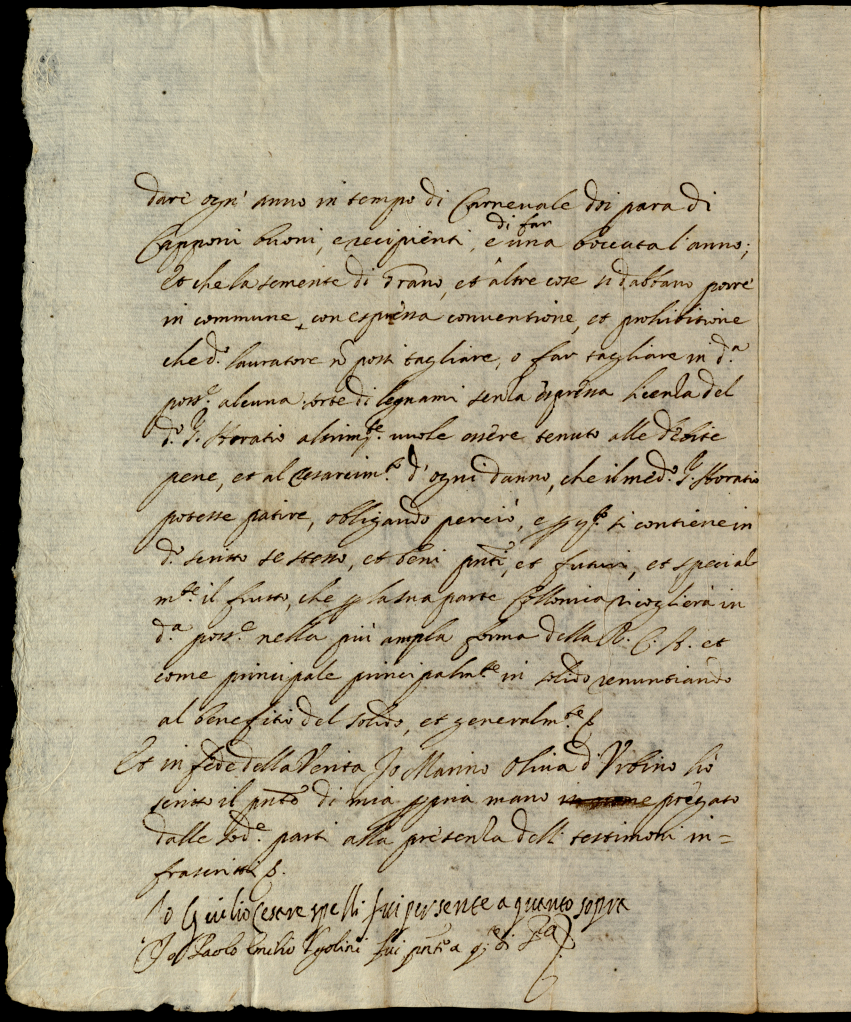 dare ogn' anno in tempo di Carnevale doi para di
Capponi buoni, e recipienti, e di far una boccata l'anno;
Et che la semente di Grano, et altre cose si dabbano porre
in commune, con espressa conventione, et prohibitione
che d.º lauratore nõ possi tagliare, o far tagliare in d.ª
poss.e alcuna sorte di legnami senza espressa licenza del
d.º S. Horatio altrim.te vuole essere tenuto alle debite
pene, et al d'ogni danno, che il med.º S. Horatio
potesse patire, obligando perciò, e si contiene in
d.º scritto se stesso, et beni pñti, et futuri, et special
m.te il frutto, che p la sua parte Collonica ricoglierà in
d.ª poss.e nella più ampla forma della R. C. A. et
come principale principalm.te in solido renuntiando
al benefitio del solido, et generalm.te
Et in fede della Verità Io Marino Oliva d'Urbino hò
scritto il pñte di mia ppria mano pregato
dalle sod.e parti alla presenza delli testimoni in=
frascritti
Io Giulio Cesare spelli fui persente a quanto sopra
Io Paolo Emilio Ugolini fui pñte a q.to di